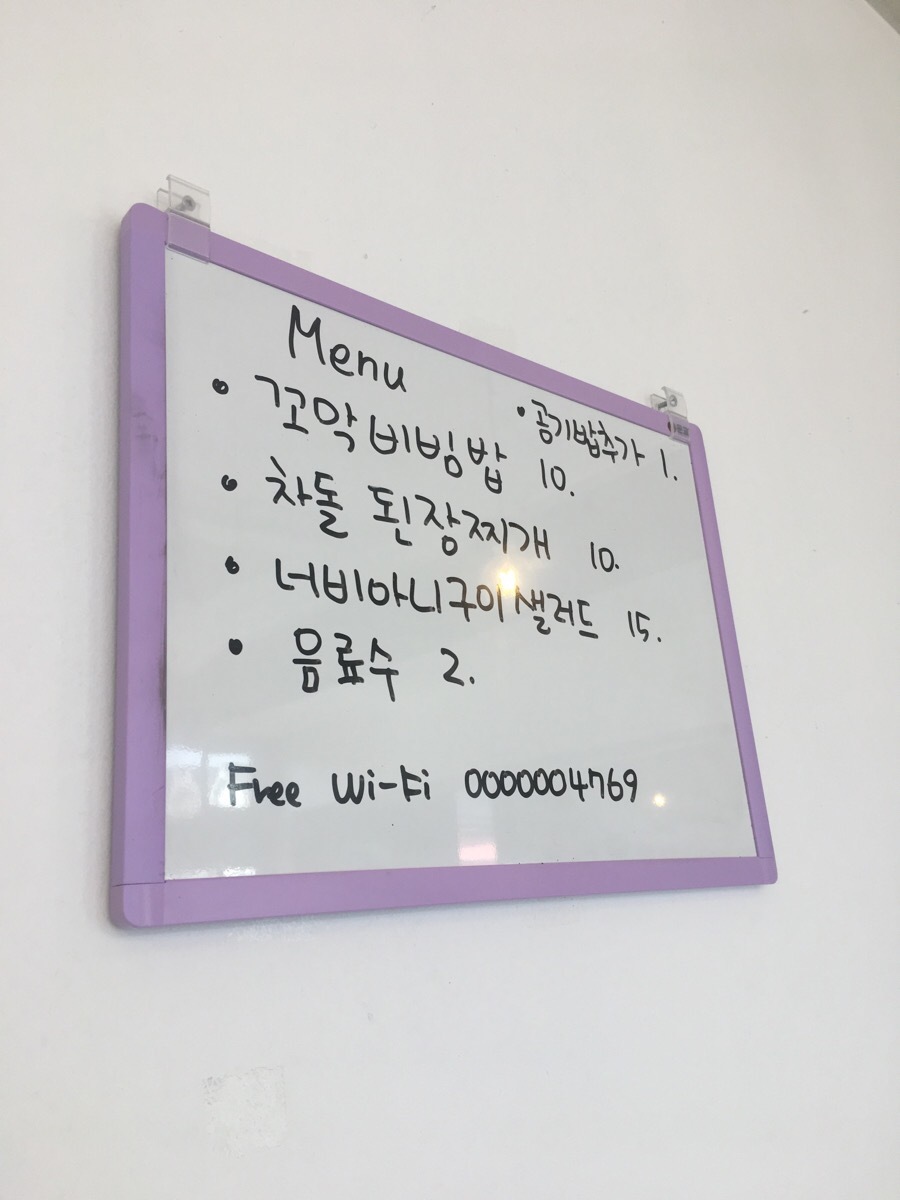 Menu
• 꼬막비빔밥 10.
• 공기밥추가 1.
• 차돌 된장찌개 10.
• 너비아니구이샐러드 15.
• 음료수 2.
Free Wi-Fi 0000004769